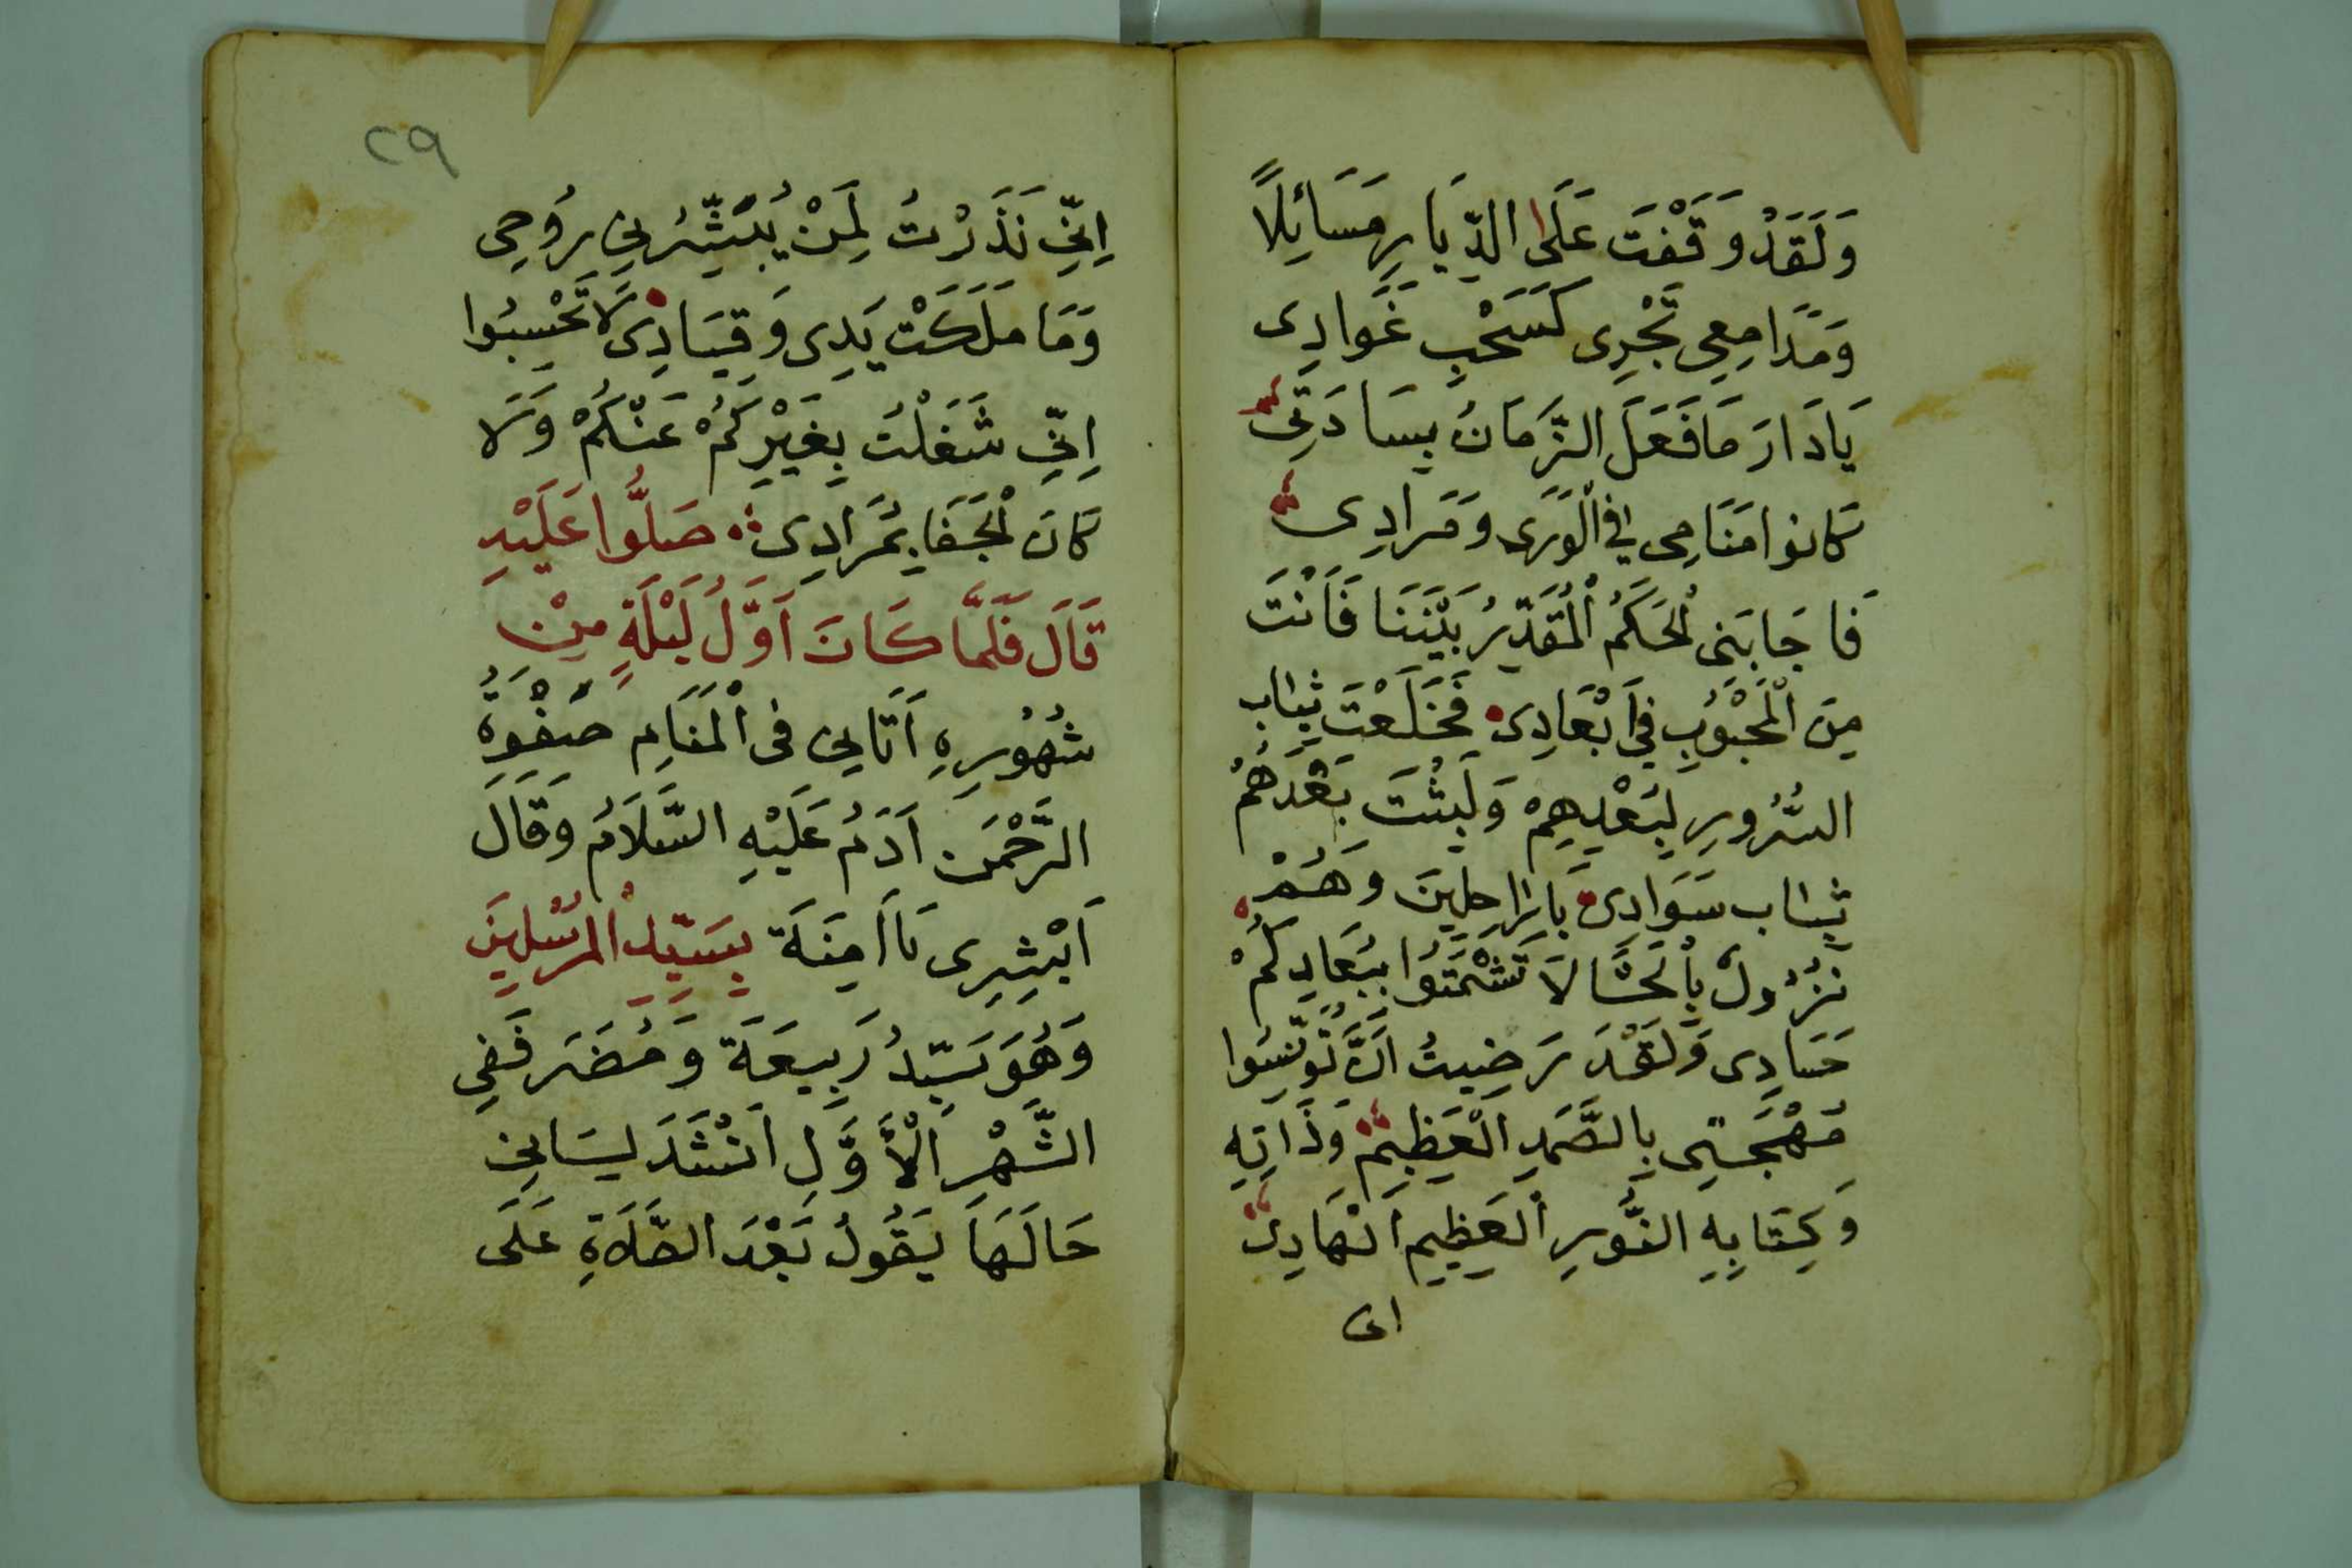 وَلَقَدْ وَقَفْتَ عَلَى الدِّيَارِ مَسَائِلًا
وَمَدَامِعِي تَجْرِى كَسَحْبِ غَوادِى
يَادَارَ مَا فَعَلَ الزَّمَانُ بِسَادَتِى
كَانوا مَنَامِى فِى الْوَرَى وَمَرادِى
فَاجَابَنِى الْحَكَمُ الْمُقَدِّرُ بَيْنَنَا فَاَنْتَ
مِنَ الْمَحْبُوْبِ فِى اَبْعَادِى فَخَلَعْتَ ثِيَاب
السُّرُورِ لِبَعْدِهِمْ وَلَبِثْتَ بَعْدَهُمْ
ثِيَاب سَوَادِى يَا رَاحِلِينَ وَهُمْ
نُزُولٌ بِالْحَشَا لَا تَشْمَتُوا بِبُعَادِكُمْ
حَسَادِى وَلَقَدْ رَضِيتُ اَنْ تُونِسُوا
مُهْجَتِى بِالصَّمَدِ الْعَظِيمْ وَذَاتِهِ
وَكِتَابِهِ النُّورِ الْعَظِيمِ الْهَادِى
اى
٢٩
اِنِّى نَذَرْتُ لِمَنْ يُبَشِّرُنِى رُوحِى
وَمَا مَلَكَتْ يَدِى وَقِيَادِى لَا تَحْسِبُوا
اِنِّى شَغَلْتُ بِغَيْرِكُمْ عَنْكُمْ وَلَا
كَانَ الْجَفَا بِمَرَادِى صَلُّوا عَلَيْهِ
قَالَ فَلَمَّا كَانَ اَوَّلُ لَيْلَةٍ مِنْ
شُهُوْرِهِ اَتَانِى فِى الْمَنَامِ صَفْوَةُ
الرَّحْمَن اَدَمُ عَلَيْهِ السَّلَامُ وَقَالَ
اَبْشِرِى يَا اَمِنَةَ بِسَيِّدِ الْمُرْسَلِينَ
وَهُوَ سَيِّدُ رَبِيعَةَ وَمُضَرَ فَفِى
الشَّهْرِ الْأَوَّلِ اَنْشَدَ لِسَانِ
حَالَهَا يَقُولُ بَعْدَ الصَّلَاةِ عَلَى